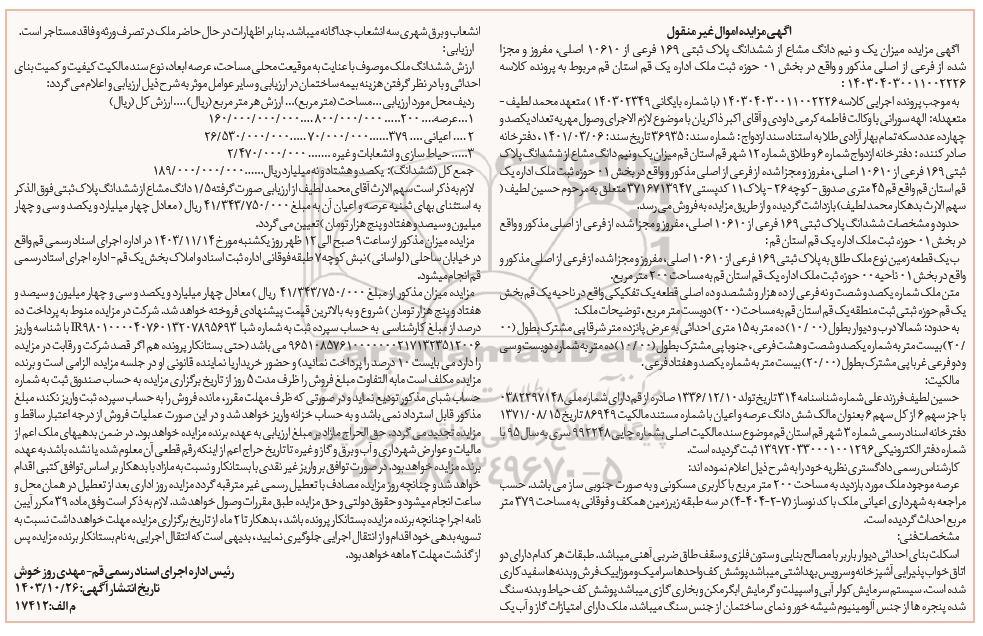 آگهی مزایده اموال غیر منقول
آگهی مزایده میزان یک و نیم دانگ مشاع از ششدانگ پلاک ثبتی ۱۶۹ فرعی از ۱۰۶۱۰ اصلی، مفروز و مجزا
شده از فرعی از اصلی مذکور و واقع در بخش ۰۱ حوزه ثبت ملک اداره یک قم استان قم مربوط به پرونده کلاسه
۱۴۰۳۰۴۰۳۰۰۱۱۰۰۲۲۲۶ :
به موجب پرونده اجرایی کلاسه ۱۴۰۳۰۴۰۳۰۰۱۱۰۰۲۲۲۶ (با شماره بایگانی ۱۴۰۳۰۲۳۴۹ ) متعهد محمد لطیف -
متعهدله: الهه سورانی با وکالت فاطمه کرمی داودی و آقای اکبر ذاکریان با موضوع لازم الاجرای وصول مهریه تعداد یکصد و
چهارده عدد سکه تمام بهار آزادی طلا به استناد سند ازدواج: شماره سند: ۳۶۹۳۵ تاریخ سند: ۱۴۰۱/۰۳/۰۶، دفترخانه
صادر کننده : دفترخانه ازدواج شماره ۶ و طلاق شماره ۱۲ شهر قم استان قم میزان یک و نیم دانگ مشاع از ششدانگ پلاک
ثبتی ۱۶۹ فرعی از ۱۰۶۱۰ اصلی، مفروز و مجزا شده از فرعی از اصلی مذکور و واقع در بخش ۰۱ حوزه ثبت ملک اداره یک
قم استان قم واقع قم ۴۵ متری صدوق - کوچه ۲۶ - پلاک ۱۱ کدپستی ۳۷۱۶۷۱۳۹۴۷ متعلق به مرحوم حسین لطیف (
سهم الارث بدهکار محمد لطیف) بازداشت گردیده و از طریق مزایده به فروش می رسد.
حدود و مشخصات ششدانگ پلاک ثبتی ۱۶۹ فرعی از ۱۰۶۱۰ اصلی، مفروز و مجزا شده از فرعی از اصلی مذکور و واقع
در بخش ۰۱ حوزه ثبت ملک اداره یک قم استان قم :
ب یک قطعه زمین نوع ملک طلق به پلاک ثبتی ۱۶۹ فرعی از ۱۰۶۱۰ اصلی، مفروز و مجزا شده از فرعی از اصلی مذکور و
واقع در بخش ۰۱ ناحیه ۰۰ حوزه ثبت ملک اداره یک قم استان قم به مساحت ۲۰۰ متر مربع.
متن ملک شماره یکصد و شصت و نه فرعی از ده هزار و ششصد و ده اصلی قطعه یک تفکیکی واقع در ناحیه یک قم بخش
یک قم حوزه ثبتی ثبت منطقه یک قم استان قم به مساحت (۲۰۰) دویست متر مربع، توضیحات ملک:
به حدود: شمالا درب و دیوار بطول (۱۰/۰۰) ده متر به ۱۵ متری احداثی به عرض پانزده متر شرقا پی مشترک بطول (۰۰
/۲۰) بیست متر به شماره یکصد و شصت و هشت فرعی، جنوبا پی مشترک بطول (۱۰/۰۰) ده متر به شماره دویست و سی
و دو فرعی غربا پی مشترک بطول (۲۰/۰۰) بیست متر به شماره یکصد و هفتاد فرعی.
مالکیت:
حسین لطیف فرزند علی شماره شناسنامه ۳۱۴ تاریخ تولد ۱۳۳۶/۱۲/۱۰ صادره از قم دارای شماره ملی ۰۳۸۲۳۹۷۱۴۸
با جز سهم ۶ از کل سهم ۶ بعنوان مالک شش دانگ عرصه و اعیان با شماره مستند مالکیت ۸۶۹۴۹ تاریخ ۱۳۷۱/۰۸/۱۵
دفترخانه اسناد رسمی شماره ۳ شهر قم استان قم موضوع سند مالکیت اصلی بشماره چاپی ۹۹۲۲۴۸ سری به سال ۹۵ با
شماره دفتر الکترونیکی ۱۳۹۷۲۰۳۳۰۰۰۱۰۰۱۲۹۶ ثبت گردیده است.
کارشناس رسمی دادگستری نظریه خود را به شرح ذیل اعلام نموده اند:
عرصه موجود ملک مورد بازدید به مساحت ۲۰۰ متر مربع با کاربری مسکونی و به صورت جنوبی ساز می باشد. حسب
مراجعه به شهرداری اعیانی ملک با کد نوسازی (۷-۲-۴۰۴-۴) در سه طبقه زیرزمین همکف و فوقانی به مساحت ۳۷۹ متر
مربع احداث گردیده است.
مشخصات فنی:
اسکلت بنای احداثی دیوار باربر با مصالح بنایی و ستون فلزی و سقف طاق ضربی آهنی میباشد. طبقات هر کدام دارای دو
اتاق خواب پذیرایی آشپزخانه و سرویس بهداشتی میباشد پوشش کف واحدها سرامیک و موزاییک فرش و بدنه ها سفیدکاری
شده است. سیستم سرمایش کولر آبی و اسپیلت و گرمایش آبگرمکن و بخاری گازی میباشد پوشش کف حیاط و بدنه سنگ
شده پنجره ها از جنس آلومینیوم شیشه خور و نمای ساختمان از جنس سنگ میباشد. ملک دارای امتیازات گاز و آب یک
انشعاب و برق شهری سه انشعاب جداگانه میباشد. بنابر اظهارات در حال حاضر ملک در تصرف ورثه و فاقد مستاجر است.
ارزیابی:
ارزش ششدانگ ملک موصوف با عنایت به موقعیت محلی مساحت، عرصه ابعاد، نوع سند مالکیت کیفیت و کمیت بنای
احداثی و با در نظر گرفتن هزینه بیمه ساختمان در ارزیابی و سایر عوامل موثر به شرح ذیل ارزیابی و اعلام می گردد:
ردیف محل مورد ارزیابی ...مساحت (متر مربع)... ارزش هر متر مربع (ریال)....ارزش کل (ریال)
۱....عرصه.... ۲۰۰..... ۸۰۰/۰۰۰/۰۰۰ ....۱۶۰/۰۰۰/۰۰۰/۰۰۰
۲.... اعیانی.... ۳۷۹......۷۰/۰۰۰/۰۰۰......۲۶/۵۳۰/۰۰۰/۰۰۰
۳..... حیاط سازی و انشعابات و غیره ....... ۲/۴۷۰/۰۰۰/۰۰۰
جمع کل (ششدانگ): یکصد و هشتاد و نه میلیارد ریال......۱۸۹/۰۰۰/۰۰۰/۰۰۰
لازم به ذکر است سهم الارث آقای محمد لطیف از ارزیابی صورت گرفته ۱/۵ دانگ مشاع از ششدانگ پلاک ثبتی فوق الذکر
به استثنای بهای ثمنیه عرصه و اعیان آن به مبلغ ۴۱/۳۴۳/۷۵۰/۰۰۰ ریال (معادل چهار میلیارد و یکصد و سی و چهار
میلیون و سیصد و هفتاد و پنج هزار تومان) تعیین می گردد.
مزایده میزان مذکور از ساعت ۹ صبح الی ۱۲ ظهر روز یکشنبه مورخ ۱۴۰۳/۱۱/۱۴ در اداره اجرای اسناد رسمی قم واقع
در خیابان ساحلی (لواسانی) نبش کوچه ۷ طبقه فوقانی اداره ثبت اسناد و املاک بخش یک قم - اداره اجرای اسناد رسمی
قم انجام میشود.
مزایده میزان مذکور از مبلغ ۴۱/۳۴۳/۷۵۰/۰۰۰ ریال ) معادل چهار میلیارد و یکصد و سی و چهار میلیون و سیصد و
هفتاد و پنج هزار تومان ) شروع و به بالاترین قیمت پیشنهادی فروخته خواهد شد. شرکت در مزایده منوط به پرداخت ده
درصد از مبلغ کارشناسی به حساب سپرده ثبت به شماره شبا IR۹۸۰۱۰۰۰۰۴۰۷۶۰۱۳۲۰۷۸۹۵۶۹۳ با شناسه واریز
۹۶۵۱۰۸۵۷۶۱۰۰۰۰۰۰۰۲۱۷۱۳۲۳۵۱۲۰۰۶ می باشد (حتی بستانکار پرونده هم اگر قصد شرکت و رقابت در مزایده
را دارد می بایست ۱۰ درصد را پرداخت نمائید) و حضور خریدار یا نماینده قانونی او در جلسه مزایده الزامی است و برنده
مزایده مکلف است مابه التفاوت مبلغ فروش را ظرف مدت ۵ روز از تاریخ برگزاری مزایده به حساب صندوق ثبت به شماره
حساب شبای مذکور تودیع نماید و در صورتی که ظرف مهلت مقرر، مانده فروش را به حساب سپرده ثبت واریز نکند مبلغ
مذکور قابل استرداد نمی باشد و به حساب خزانه واریز خواهد شد و در این صورت عملیات فروش از درجه اعتبار ساقط و
مزایده تجدید می گردد. حق الحراج مازاد بر مبلغ ارزیابی به عهده برنده مزایده خواهد بود. در ضمن بدهیهای ملک اعم از
مالیات و عوارض شهرداری و آب و برق و گاز و غیره تا تاریخ حراج اعم از اینکه رقم قطعی آن معلوم شده یا نشده باشد به عهده
برنده مزایده خواهد بود. در صورت توافق بر واریز غیر نقدی با بستانکار و نسبت به مازاد با بدهکار بر اساس توافق کتبی اقدام
خواهد شد و چنانچه روز مزایده مصادف با تعطیل رسمی غیر مترقبه گردد مزایده روز اداری بعد از تعطیل در همان محل و
ساعت انجام میشود و حقوق دولتی و حق مزایده طبق مقررات وصول خواهد شد. لازم به ذکر است وفق ماده ۳۹ مکرر آیین
نامه اجرا چنانچه برنده مزایده بستانکار پرونده باشد، بدهکار تا ۲ ماه از تاریخ برگزاری مزایده مهلت خواهد داشت نسبت به
تسویه بدهی خود اقدام و از انتقال اجرایی جلوگیری نمایید، بدیهی است که انتقال اجرایی به نام بستانکار برنده مزایده پس
از گذشت مهلت ۲ ماهه خواهد بود.
رئیس اداره اجرای اسناد رسمی قم- مهدی روز خوش
تاریخ انتشار آگهی: ۱۴۰۳/۱۰/۲۶
م الف: ۱۷۴۱۲